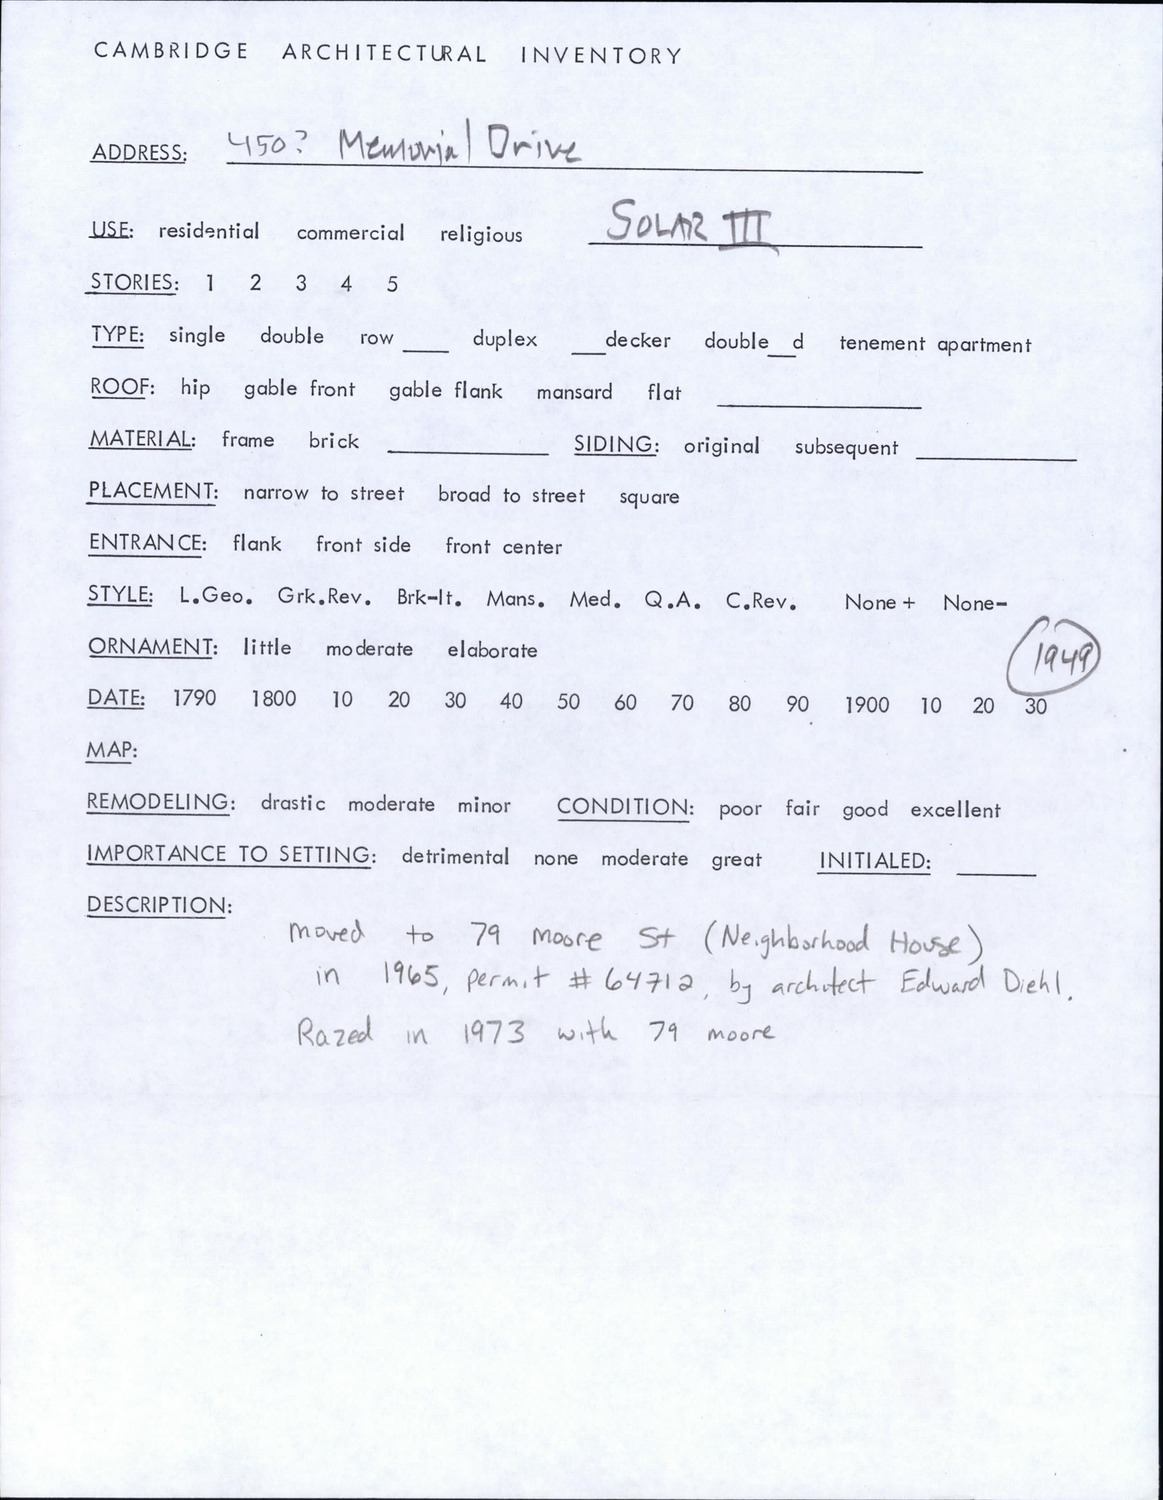 CAMBRIDGE ARCHITECTURAL INVENTORY
ADDRESS: 450? Memorial Drive
USE: residential commercial religious SOLAR III
STORIES: 1 2 3 4 5
TYPE: single double row ____ duplex ___decker double__d tenement apartment
ROOF: hip gable front gable flank mansard flat ____
MATERIAL: frame brick ____ SIDING: original subsequent ____
PLACEMENT: narrow to street broad to street square
ENTRANCE: flank front side front center
STYLE: L.Geo. Grk.Rev. Brk-It. Mans. Med. Q.A. C.Rev. None+ None-
ORNAMENT: little moderate elaborate 1949
DATE: 1790 1800 10 20 30 40 50 60 70 80 90 1900 10 20 30
MAP:
REMODELING: drastic moderate minor CONDITION: poor fair good excellent
IMPORTANCE TO SETTING: detrimental none moderate great INITIALED: ____
DESCRIPTION:
moved to 79 Moore St (Neighborhood House)
in 1965, permit # 64712, by architect Edward Diehl.
Razed in 1973 with 79 moore